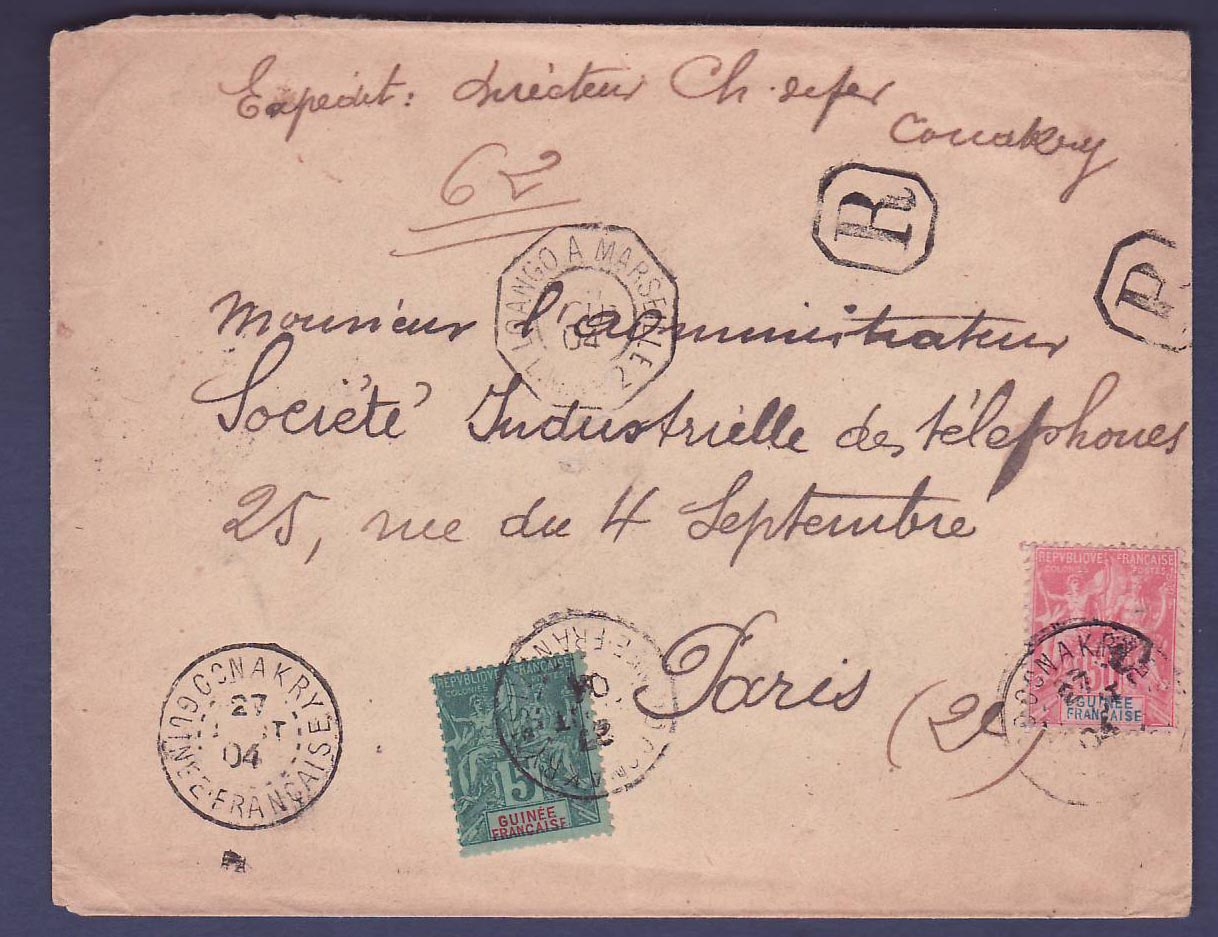 Expedit: Directeur Ch. de fer
Conakry
62
R
R
LOANGO A MARSEILLE
2
04
Monsieur l'administrateur
Société Industrielle des téléphones
25, rue du 4 Septembre
Paris
(2e)
CONAKRY
27
04
GUINEE-FRANÇAISE
REPVBLIQVE FRANÇAISE
COLONIES POSTES
5
GUINÉE
FRANÇAISE
CONAKRY
27
04
REPVBLIQVE FRANÇAISE
COLONIES POSTES
GUINÉE
FRANÇAISE
CONAKRY
27
04